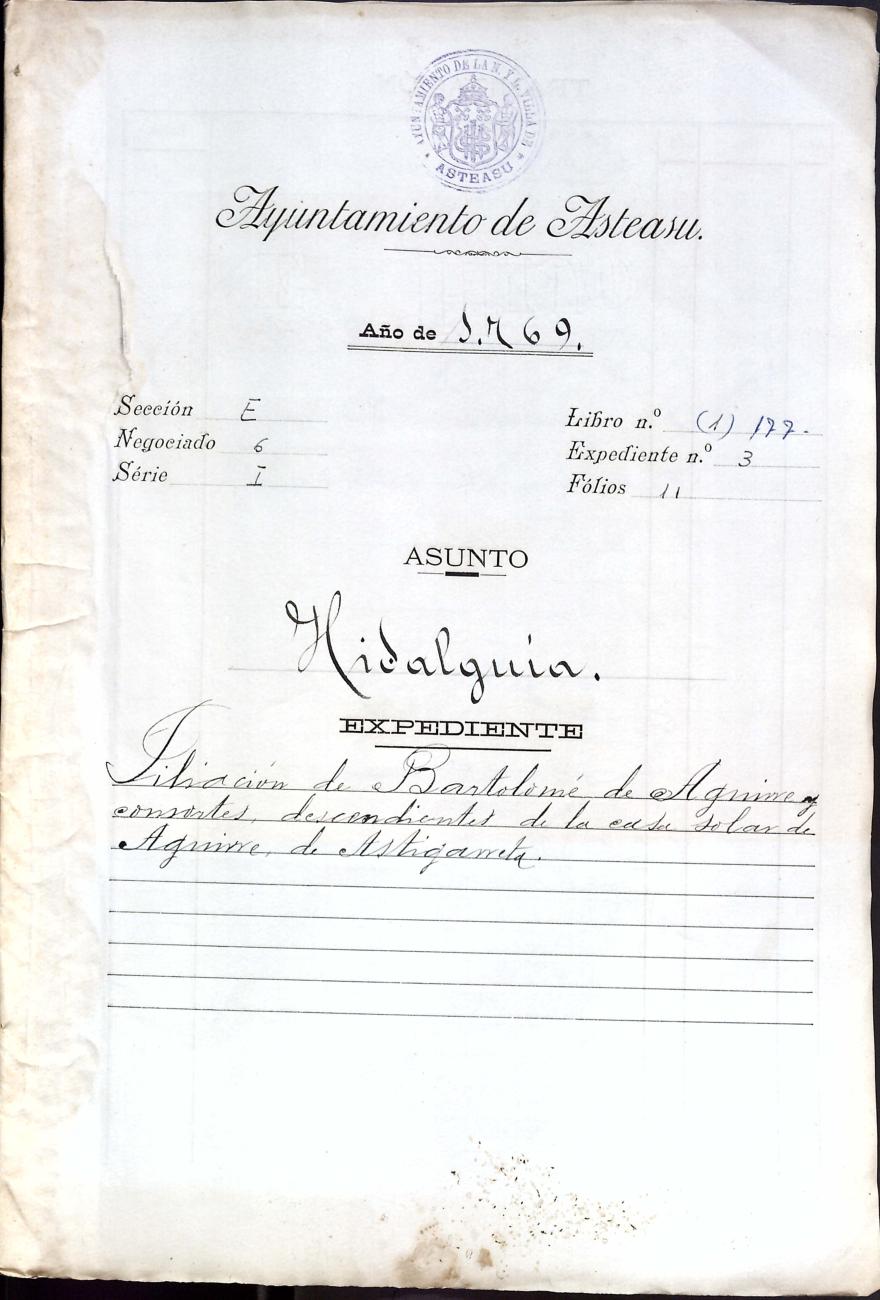 AYUNTAMIENTO DE LA N. Y L. VILLA DE
* ASTEASU *
Ayuntamiento de Asteasu.
Año de 1.769.
Sección E
Negociado 6
Série I
Libro n.º (1) 177.
Expediente n.º 3
Fólios 11
ASUNTO
Hidalguía.
EXPEDIENTE
Filiación de Bartolomé de Aguirre y
consortes, descendientes de la casa solar de
Aguirre, de Astigarreta.